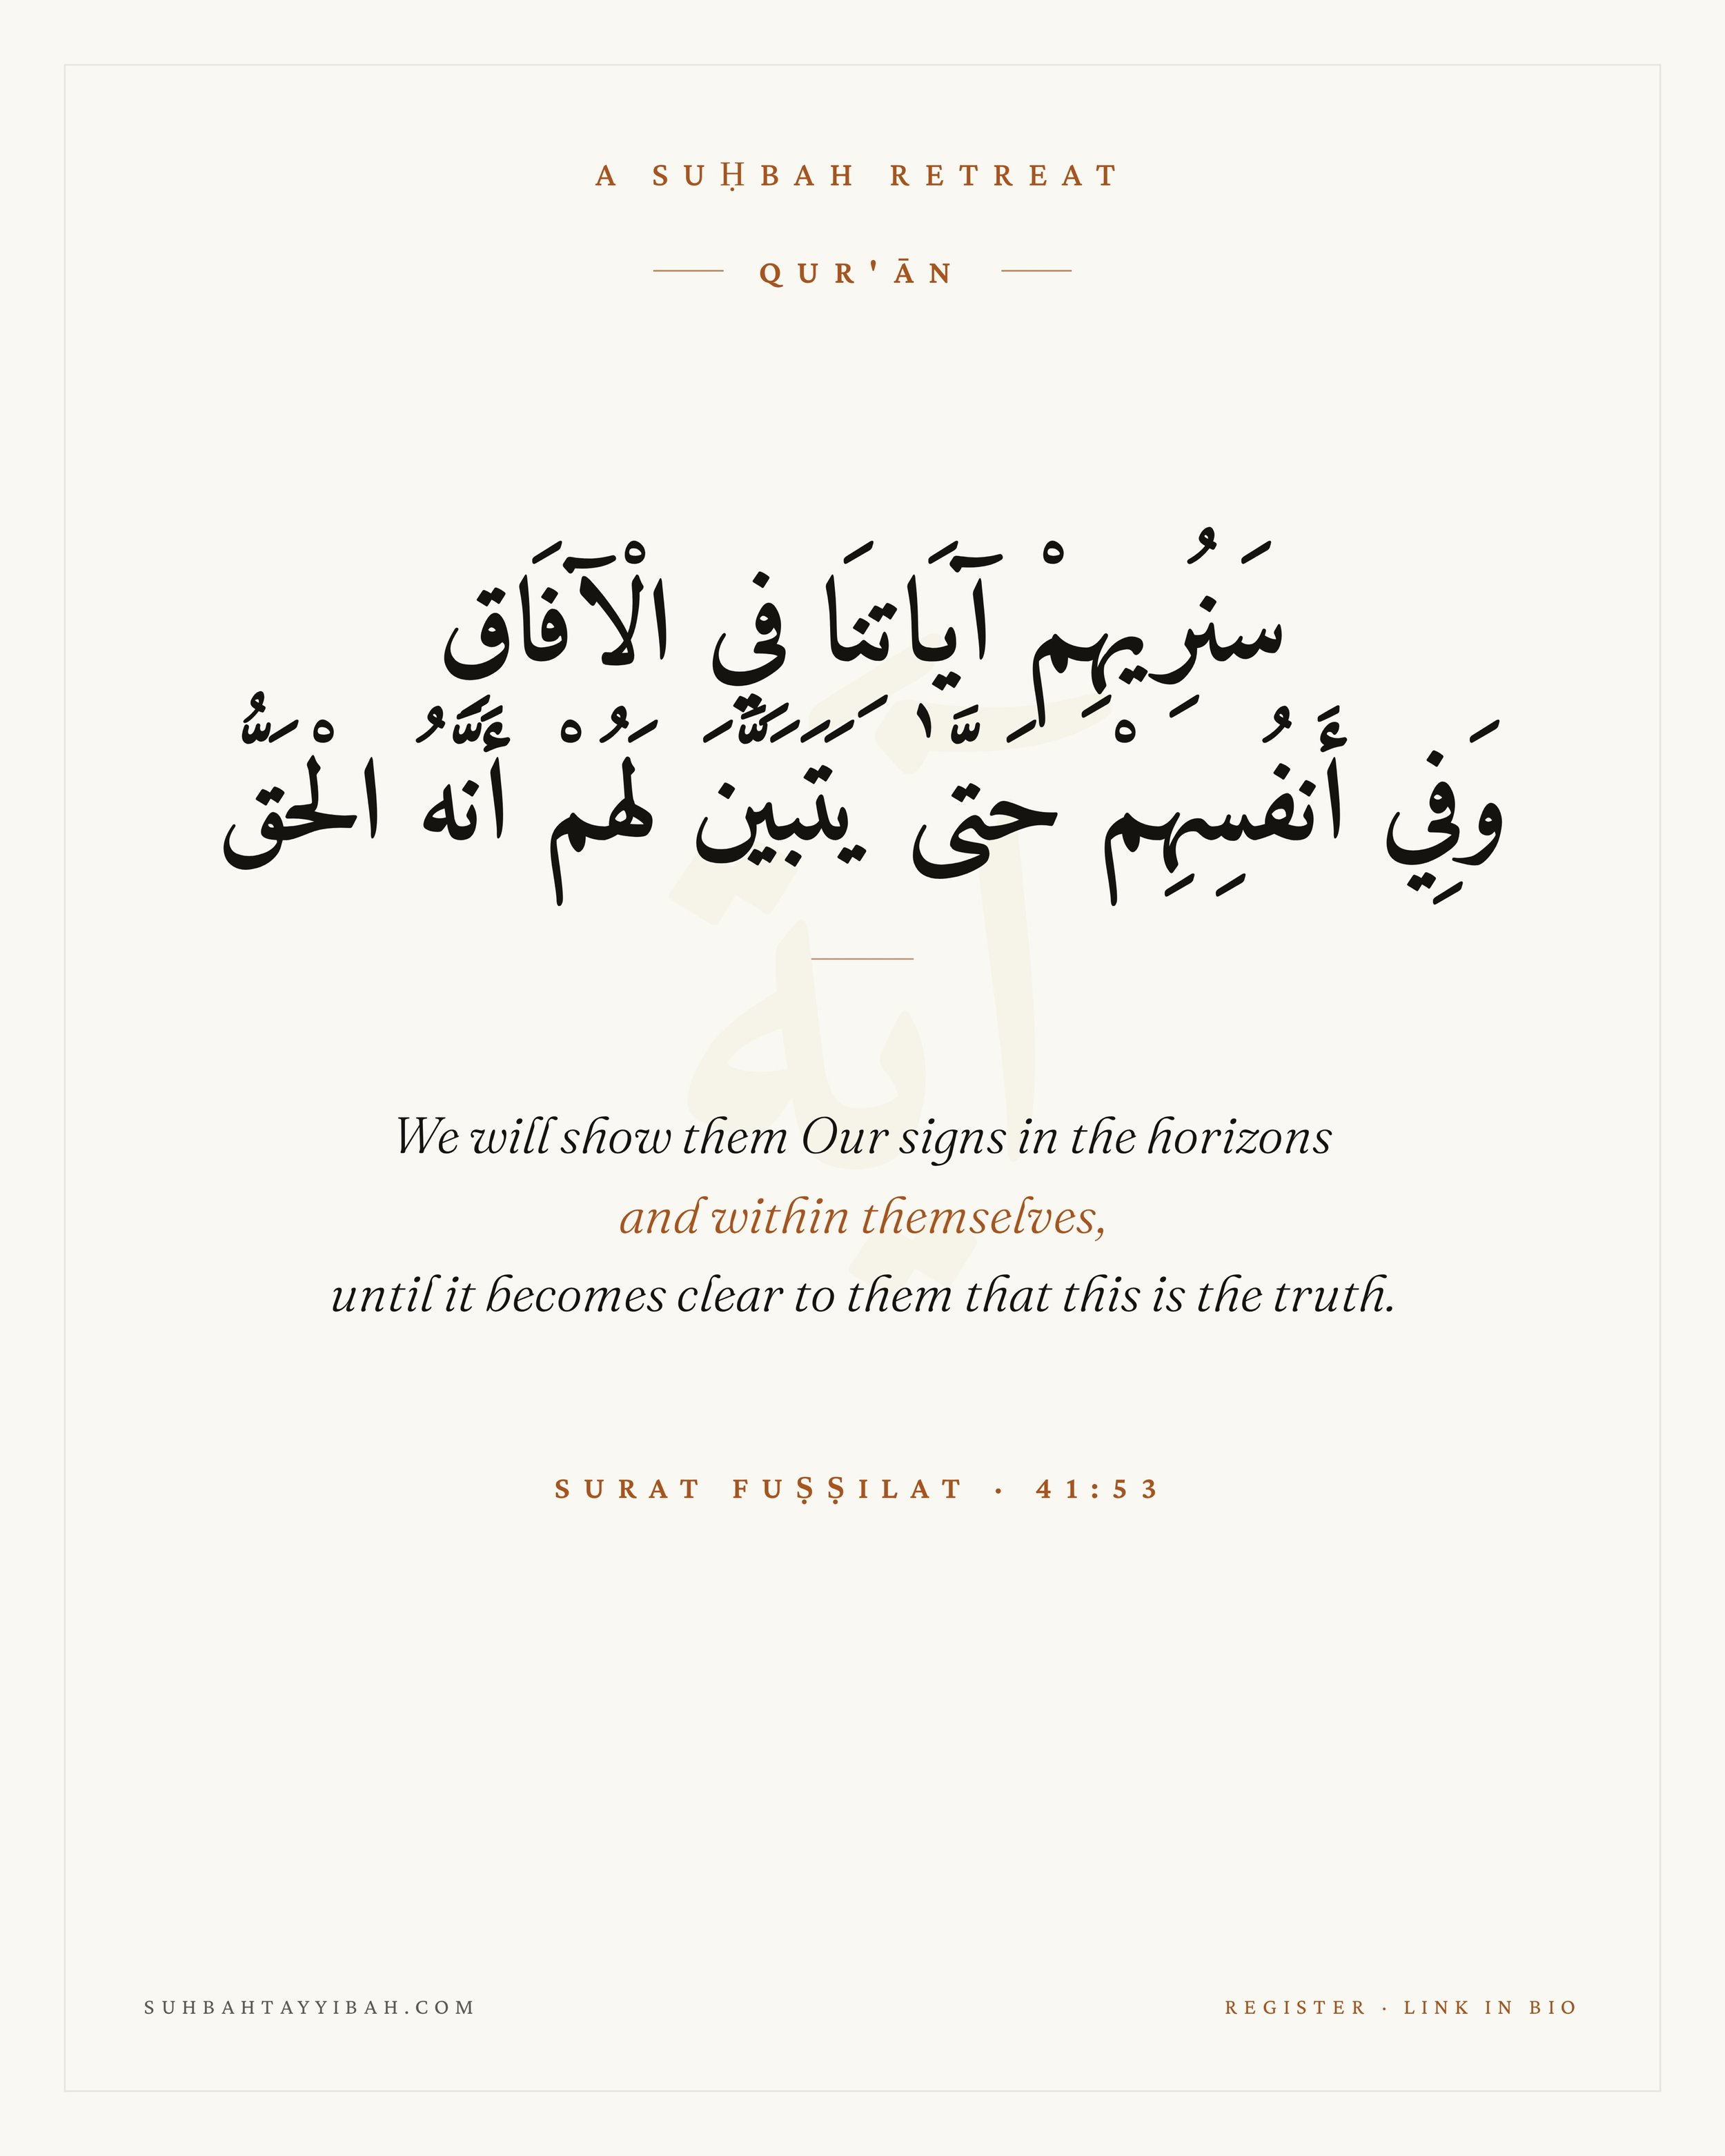 A SUḤBAH RETREAT
QUR'ĀN
سَنُرِيهِمْ آيَاتِنَا فِي الْآفَاقِ
وَفِي أَنفُسِهِمْ حَتَّىٰ يَتَبَيَّنَ لَهُمْ أَنَّهُ الْحَقُّ
آية
We will show them Our signs in the horizons
and within themselves,
until it becomes clear to them that this is the truth.
SURAT FUṢṢILAT · 41:53
SUHBAHTAYYIBAH.COM
REGISTER · LINK IN BIO